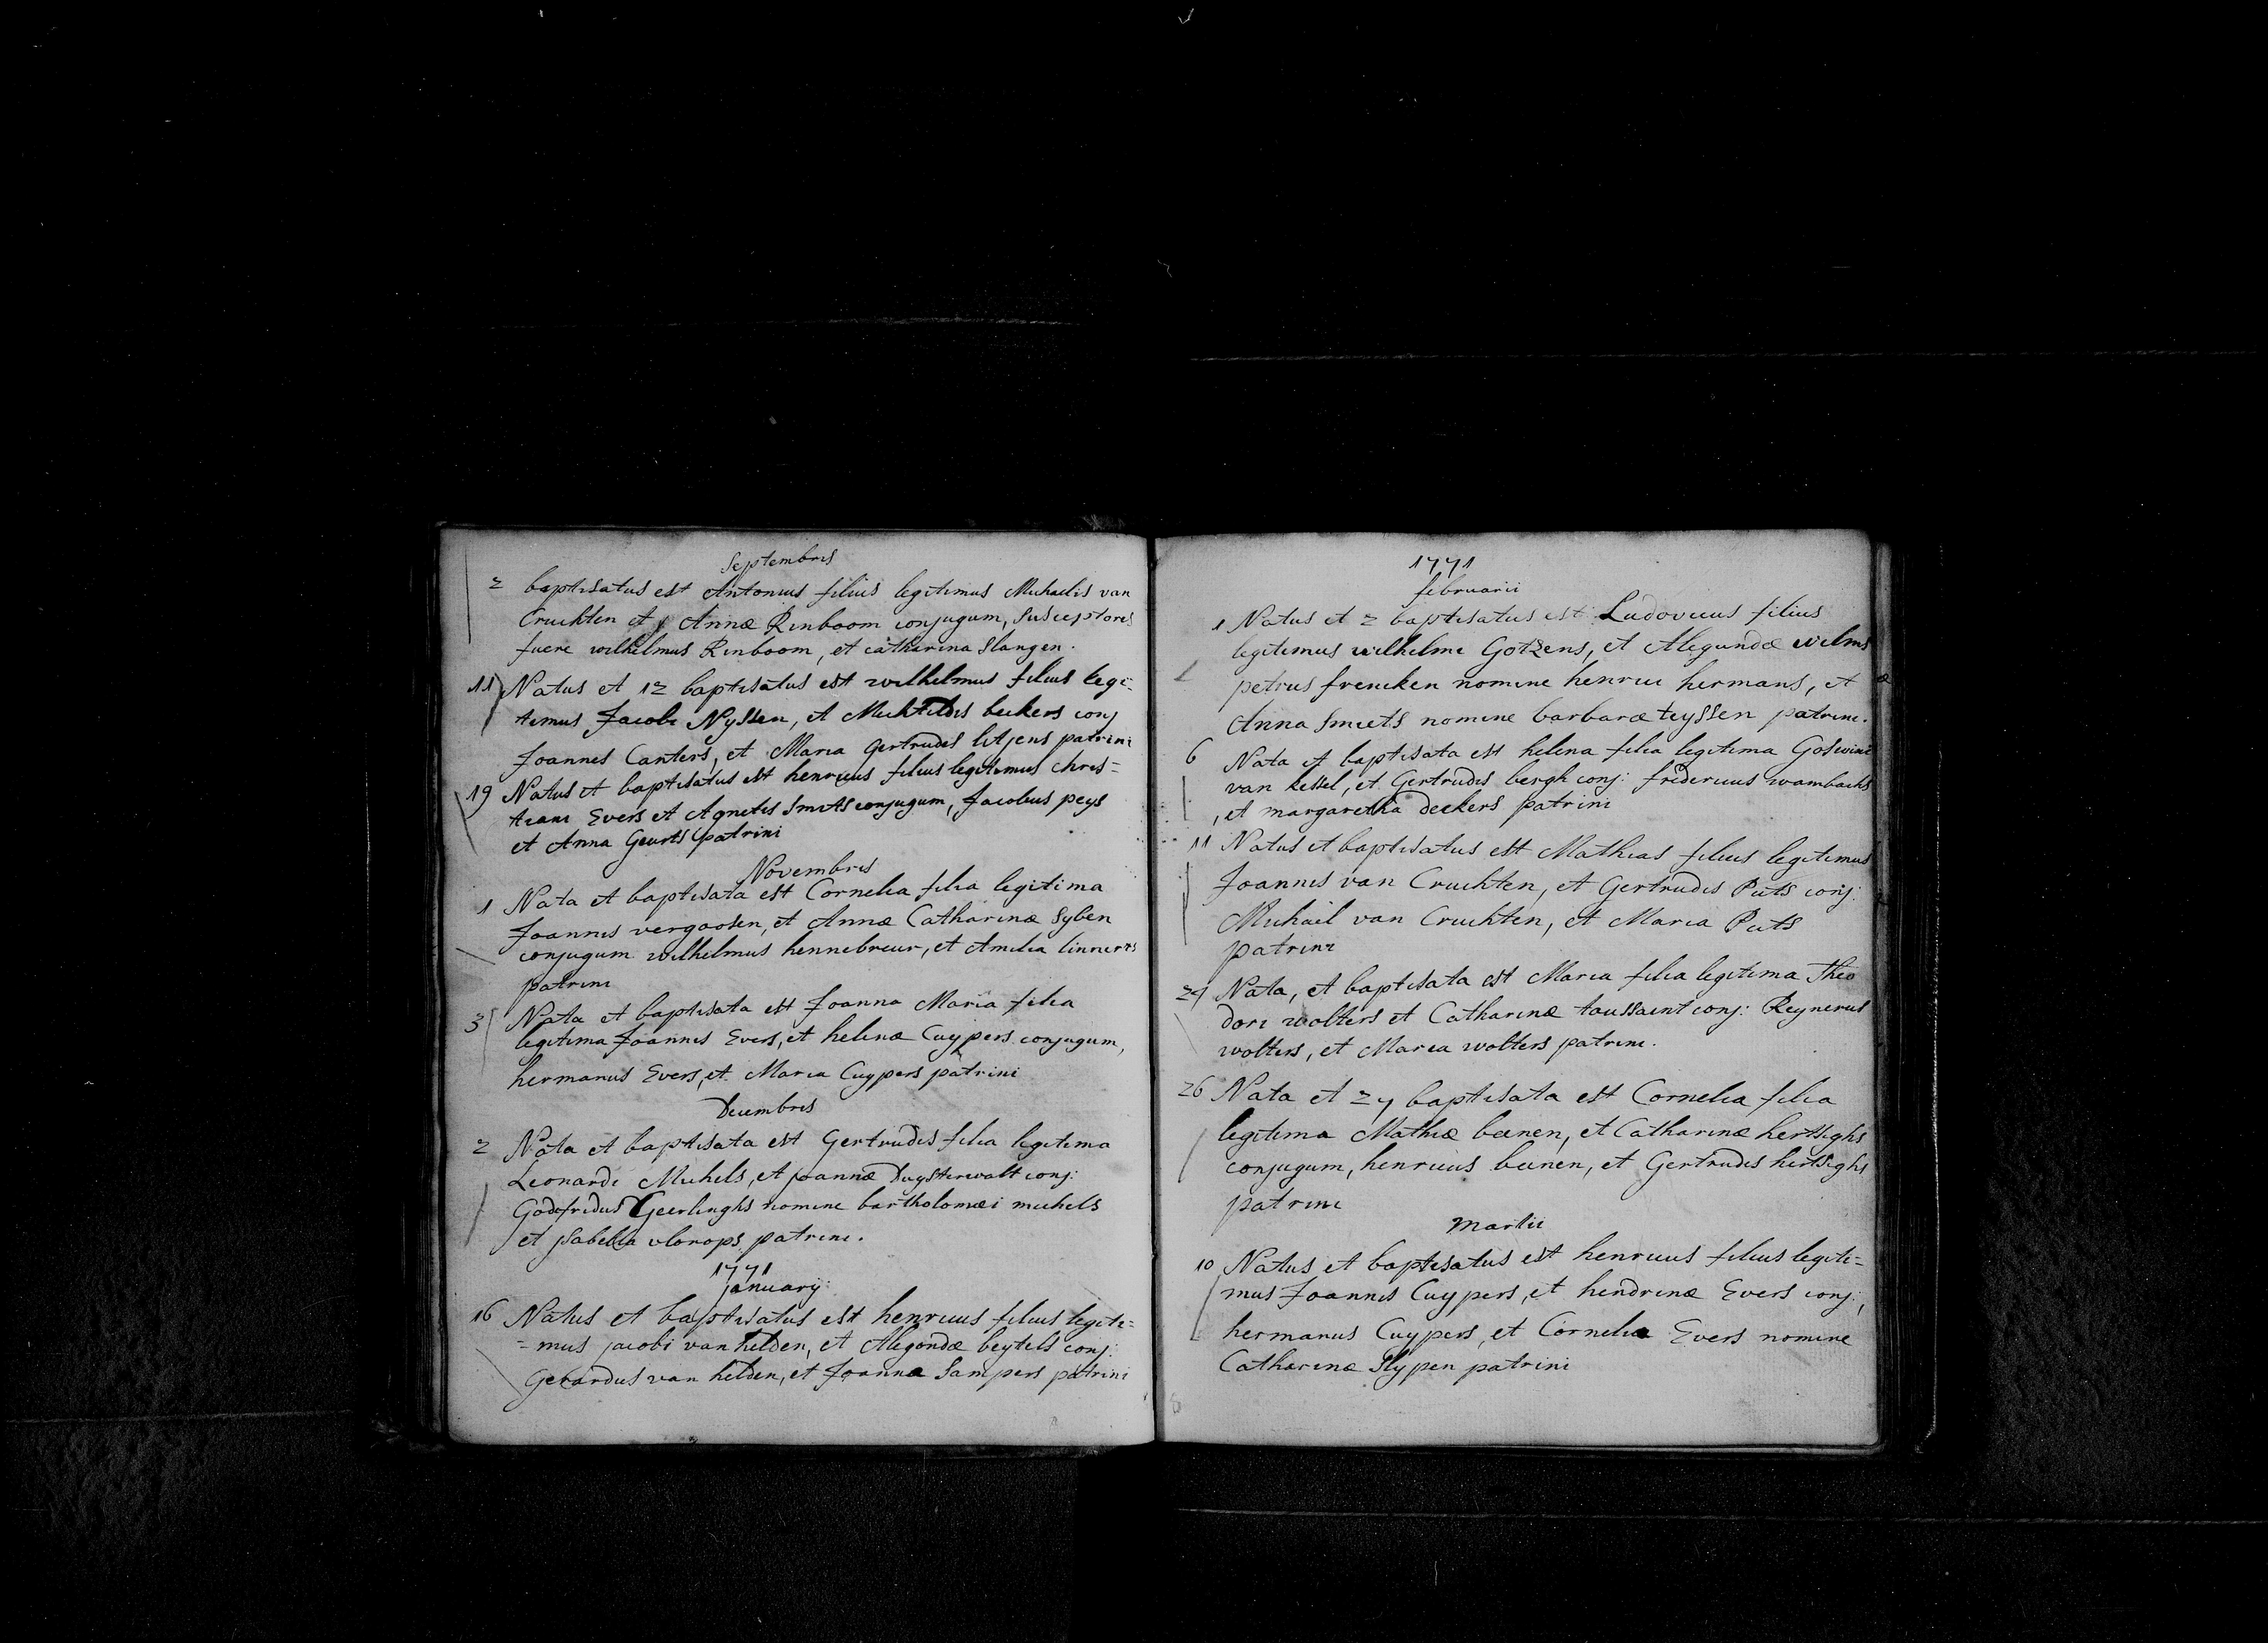 Septembris
2 baptisatus est Antonius filius legitimus Michaelis van
Cruchten et Annæ Rinboom conjugum, Susceptores
fuere wilhelmus Rinboom, et catharina Slangen.
11 Natus et 12 baptisatus est wilhelmus filius legi-
timus Jacobi Nyssen, et Mechtildis beckers conj
Joannes Canters, et Maria Gertrudis litjens patrini
19 Natus et baptisatus est henricus filius legitimus chris=
tiani Evers et Agnetis Smits conjugum, Jacobus peys
et Anna Geurts patrini
Novembris
1 Nata et baptisata est Cornelia filia legitima
Joannis vergoosen, et Annæ Catharinæ Syben
conjugum wilhelmus hennebreur, et Amelia linners
patrini
3 Nata et baptisata est Joanna Maria filia
legitima Joannis Evers, et helenæ Cuypers conjugum,
hermanus Evers, et Maria Cuypers patrini
Decembris
2 Nata et baptisata est Gertrudis filia legitima
Leonardi Michels, et joannæ Duysterwalt conj:
Godefridus Geerlinghs nomine bartholomæi michels
et jsabella vlorops patrini.
1771
january
16 Natus et baptisatus est henricus filius legiti=
=mus jacobi van helden, et Alegondæ beytels conj:
Gerardus van helden, et Joanna Sampers patrini
1771
februarii
1 Natus et 2 baptisatus est Ludovicus filius
legitimus wilhelmi Gotzens, et Alegundæ wilms
petrus frencken nomine henrici hermans, et
Anna Smeets nomine barbaræ teyssen patrini.
6 Nata et baptisata est helena filia legitima Goswini
van kessel, et Gertrudis bergh conj: fridericus wambachs
, et margaretha deckers patrini
11 Natus et baptisatus est Mathias filius legitimus
Joannis van Cruchten, et Gertrudis Puts conj:
Michael van Cruchten, et Maria Puts
patrini
Nata, et baptisata est Maria filia legitima Theo
dori wolters et Catharinæ toussaint conj: Reynerus
wolters, et Maria wolters patrini.
26 Nata et 27 baptisata est Cornelia filia
legitima Mathiæ beenen, et Catharinæ hertsighs
conjugum, henricus beenen, et Gertrudis hertsighs
patrini
Martii
10 Natus et baptisatus est henricus filius legiti=
mus Joannis Cuypers, et hendrinæ Evers conj:,
hermanus Cuypers, et Cornelia Evers nomine
Catharinæ Slypen patrini